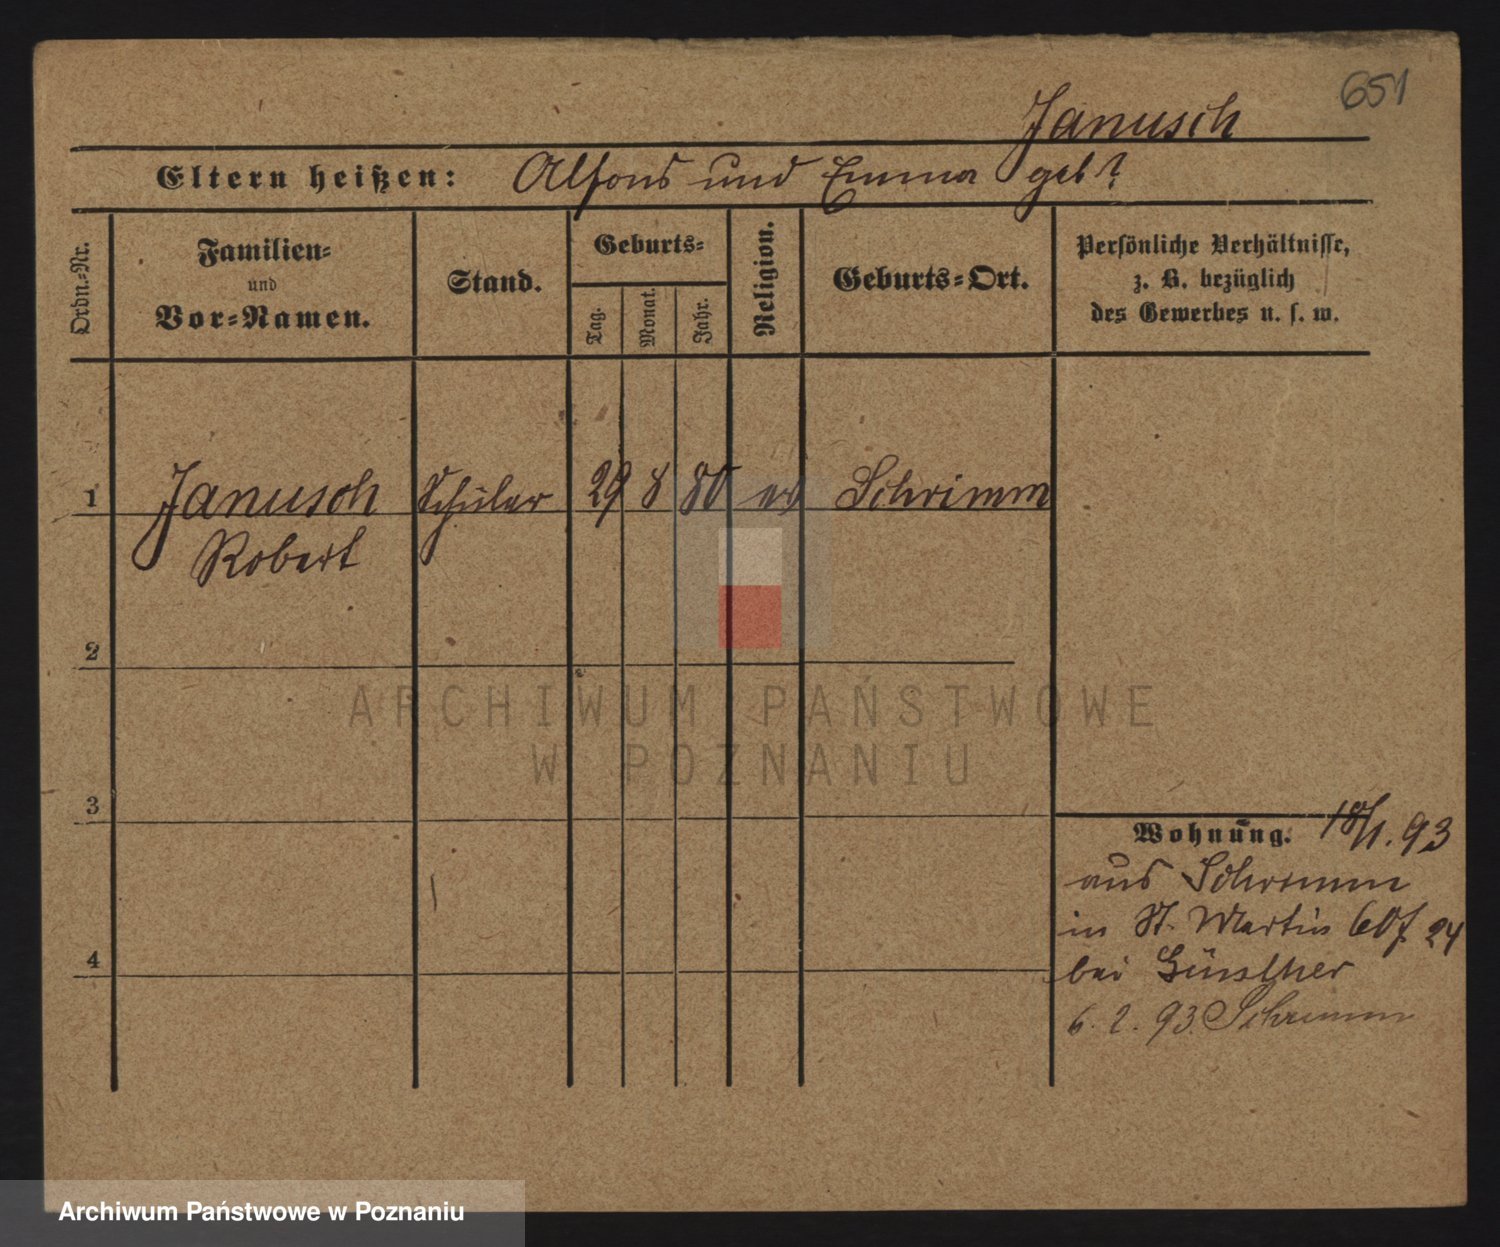 651
Janusch
Eltern heißen: Alfons und Emma geb?
Ordn.-Nr.
Familien-
und
Vor-Namen.
Stand.
Geburts-
Tag.
Monat.
Jahr.
Religion.
Geburts-Ort.
Persönliche Verhältnisse,
z. B. bezüglich
des Gewerbes u. s. w.
1 Janusch Schüler 29 8 80 ev Schrimm
Robert
2
3
4
Wohnung. 18/1. 93
aus Schrimm
in St. Martin 60 24
bei Günther
6. 2. 93. Schrimm
ARCHIWUM PAŃSTWOWE
W POZNANIU
Archiwum Państwowe w Poznaniu